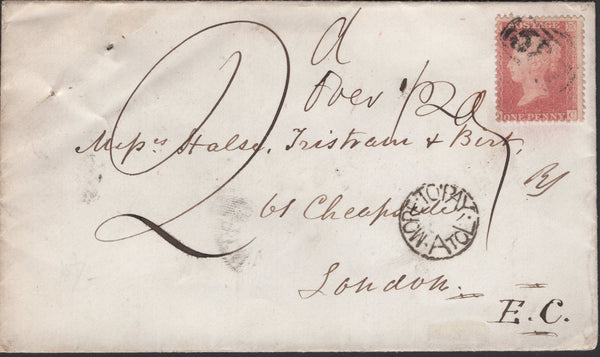 POSTAGE
ONE PENNY
2d
Over ½
Messrs Halse, Tristram & Bert,
61 Cheapside,
London.
E.C.
MORE TO PAY
A TO L